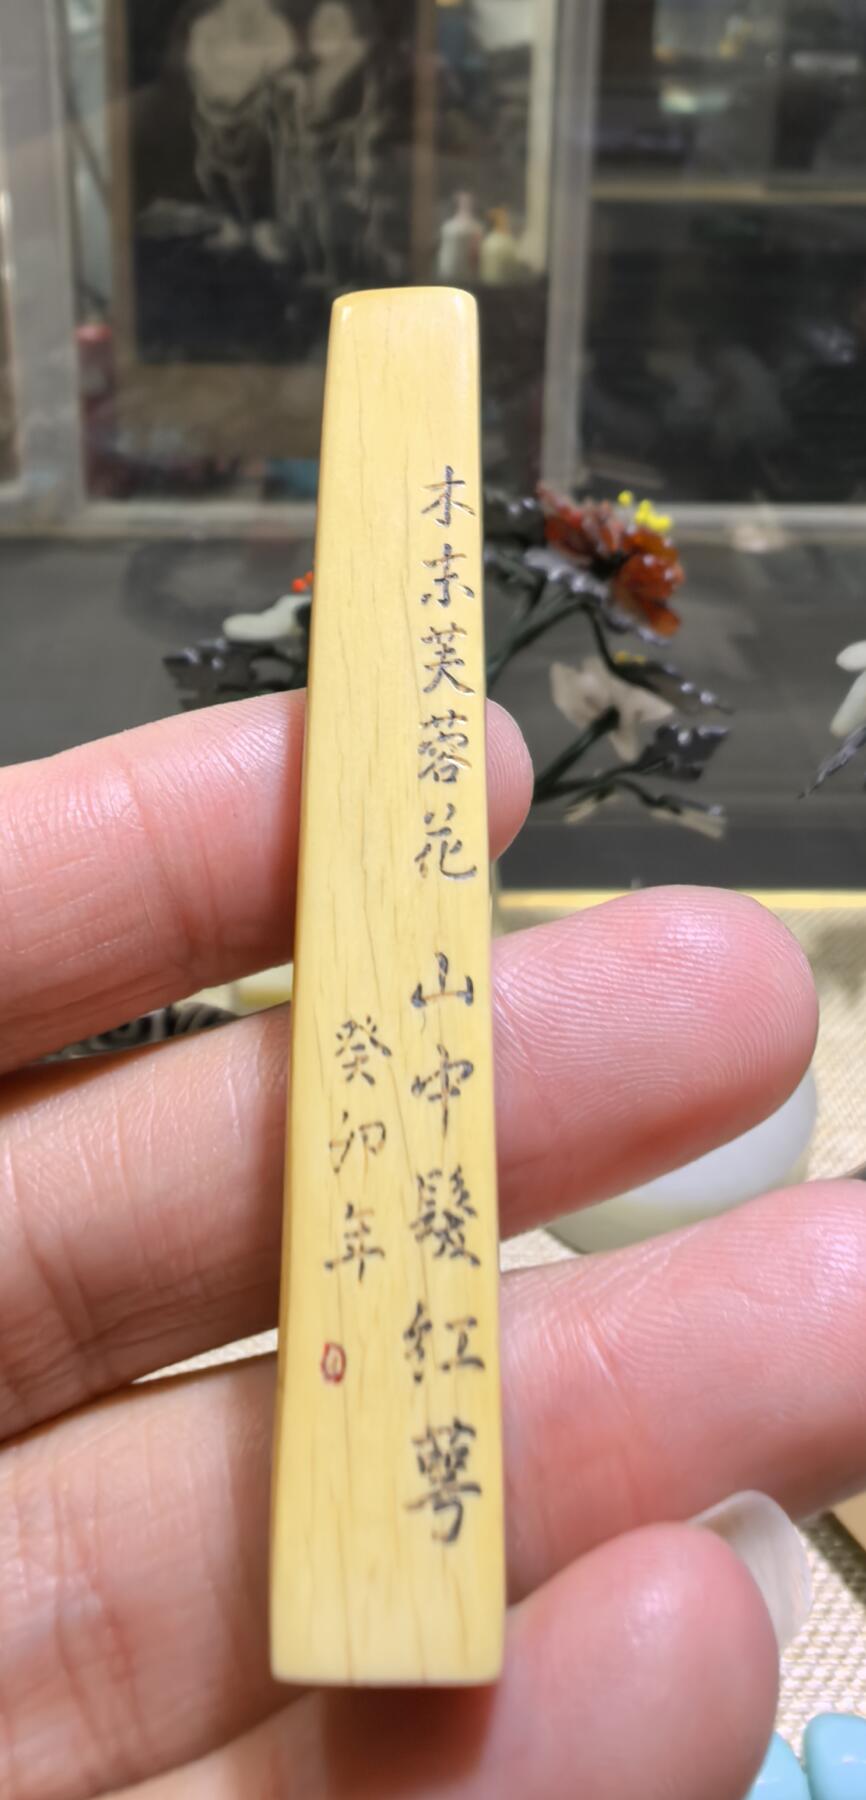 木末芙蓉花　山中髮紅萼
癸卯年